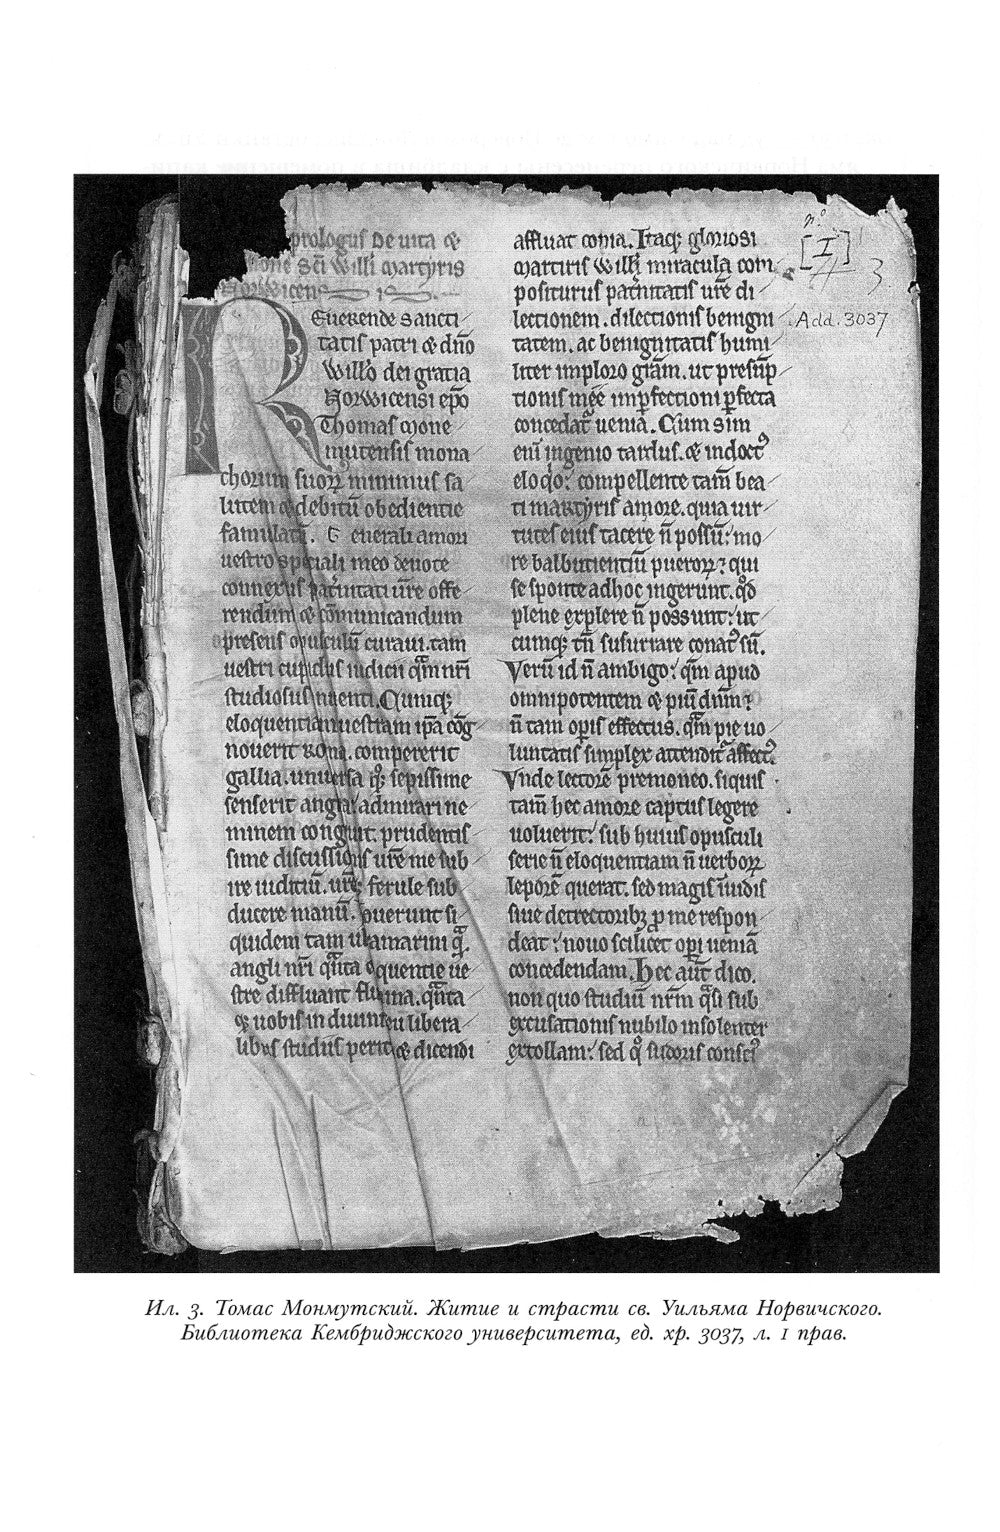 prologus De uita &
one Sci Willi Martyris
Norwicen
REuerende Sancti
tatis patri & dño
Willo dei gratia
Norwicensi epo
Thomas Mone
mutensis mona
chorum suoꝝ minimus sa
lutem & debitū obedientie
famulatū. G enerali amori
uestro speciali meo deuote
connexus pat̄nitati ur̄e offe
rendum & cōmunicandum
presens opusculū curaui. tam
uestri cupidus iudicii qm̄ nr̄i
studiosus inuenti. Cumq;
eloquentiam uestram ip̄a cog
nouerit roma. compererit
gallia. uniuersa q; sepissime
senserit anglia. admirari ne
minem congruit. prudentis
sime discussionis ur̄e me sub
ire iudiciū. ur̄e ferule sub
ducere manū. Nouerunt si
quidem tam ultramarini q̄
angli nr̄i qn̄ta eloquentie ue
stre diffluant flumina. qn̄ta
q; uobis in diuinis eu libera
libus studiis peritia & dicendi
affluat copia. Itaq; gloriosi
Martiris Willi miracula com
positurus pat̄nitatis ur̄e di
lectionem. dilectionis benigni
tatem. ac benignitatis humi
liter imploro gr̄am. ut presūp
tionis mee imꝑfectioni ꝑfecta
concedat̄ uenia. Cum sim
eni ingenio tardus. & indoct⁹
eloqio: compellente tam̄ bea
ti martyris amore. quia uir
tutes eius tacere n̄ possū: mo
re balbutientiū pueroꝝ: qui
se sponte ad hoc ingerunt. qd̄
plene explere n̄ possunt: ut
cumq; tn̄ susurrare conat⁹ sū.
Verū id n̄ ambigo: qm̄ apud
omnipotentem & piū dn̄m:
n̄ tam opis effectus. qm̄ pie uo
luntatis simplex attendit̄ affect⁹.
Vnde lectore premoneo. siquis
tam̄ hec amore captus legere
uoluerit: sub huius opusculi
serie n̄ eloquentiam n̄ uerboꝝ
leporē querat. sed magis inuidis
siue detrectoribꝫ ꝓ me respon
deat: nouo scilicet opi ueniā
concedendam. Hec aut̄ dico.
non quo studiū nr̄m qsi sub
excusationis nubilo insolenter
extollam: sed q̄ sudoris consci⁹
nº
[I]
3
Add. 3037
Ил. 3. Томас Монмутский. Житие и страсти св. Уильяма Норвичского.
Библиотека Кембриджского университета, ед. хр. 3037, л. 1 прав.